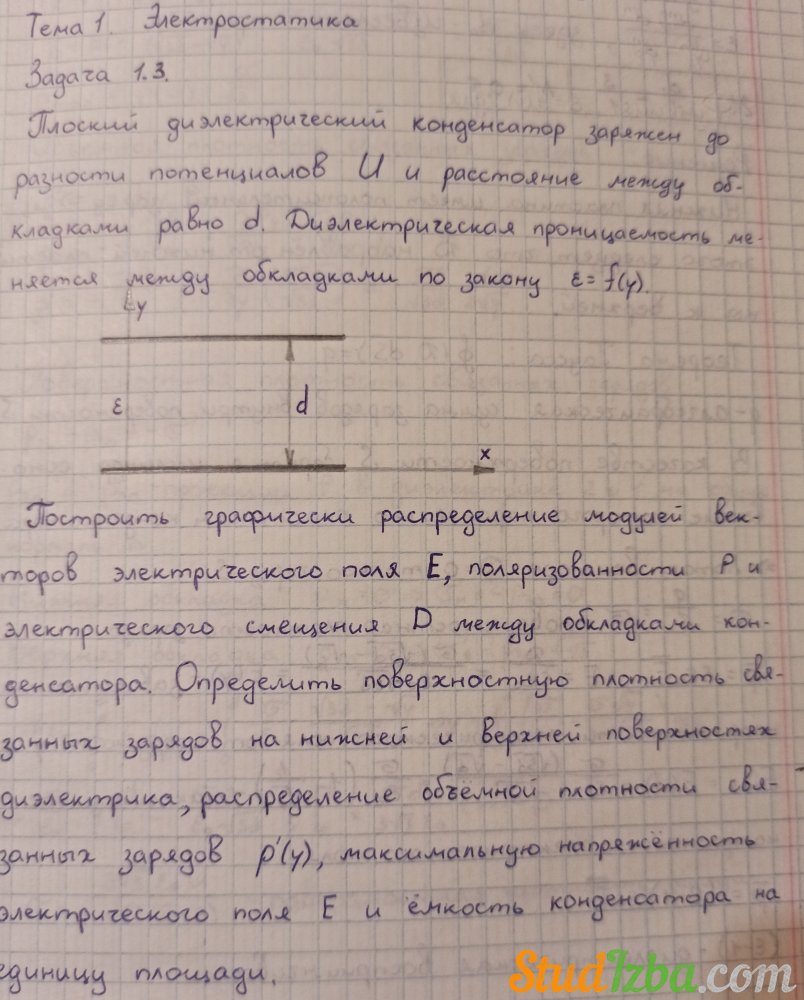 Тема 1. Электростатика
Задача 1.3.
Плоский диэлектрический конденсатор заряжен до
разности потенциалов U и расстояние между об-
кладками равно d. Диэлектрическая проницаемость ме-
няется между обкладками по закону ε = f(y).
y
ε
d
x
Построить графически распределение модулей век-
торов электрического поля E, поляризованности P и
электрического смещения D между обкладками кон-
денсатора. Определить поверхностную плотность свя-
занных зарядов на нижней и верхней поверхностях
диэлектрика, распределение объёмной плотности свя-
занных зарядов ρ'(y), максимальную напряжённость
электрического поля E и ёмкость конденсатора на
единицу площади.
StudIzba.com